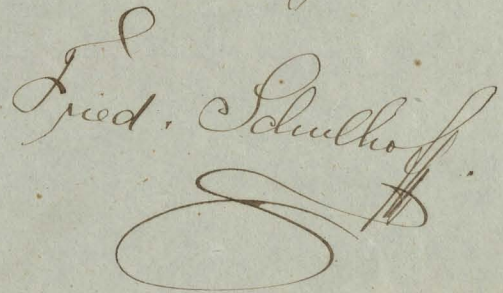 Fried. Schulhoff.